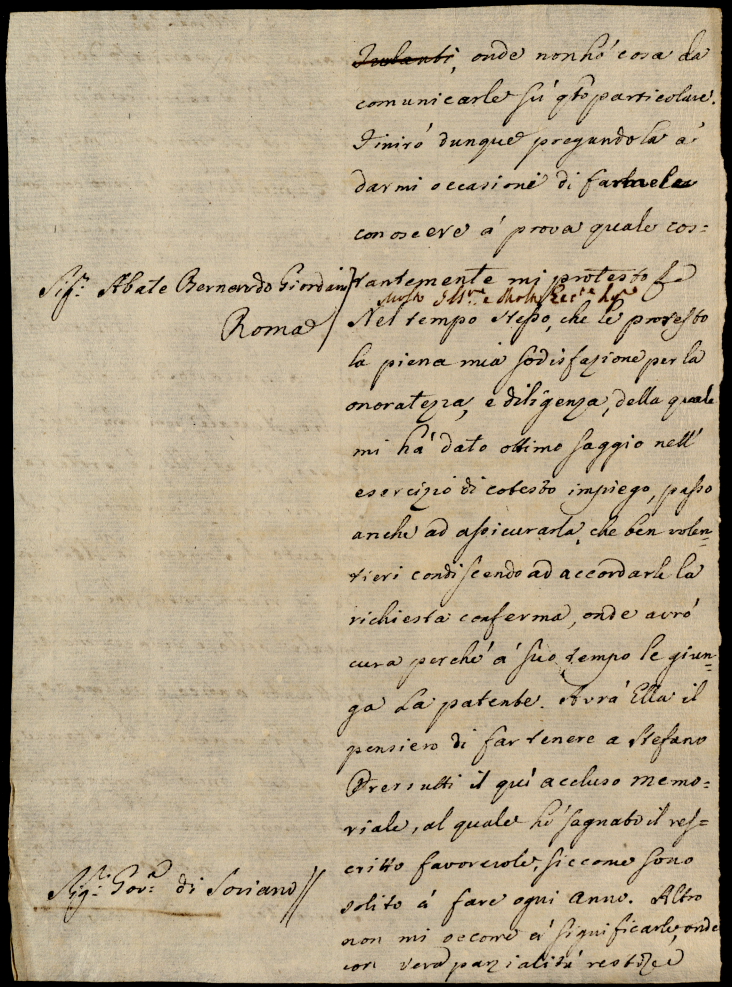 onde non hò cosa da
comunicarle sù qto particolare.
Finirò dunque pregandola à
darmi occasioni di farle
conoscere à prova quale cos=
Sigr. Abate Bernardo Giordani
tantemente mi protesto
Roma
Molto Illre. e Molto
Nel tempo stesso, che le protesto
la piena mia sodisfazione per la
onoratezza, e diligenza, della quale
mi hà dato ottimo saggio nell'
esercizio di cotesto impiego, passo
anche ad assicurarla, che ben volen=
tieri condiscendo ad accordarle la
richiesta conferma, onde avrò
cura perchè à suo tempo le giun=
ga la patente. Avrà Ella il
pensiero di far tenere a Stefano
il quì accluso memo=
riale, al quale hò sagnato il res=
critto favorevole, siccome sono
Sigr. Govre. di Soriano
solito à fare ogni anno. Altro
non mi occorre à significarle, onde
con vera parzialità resto